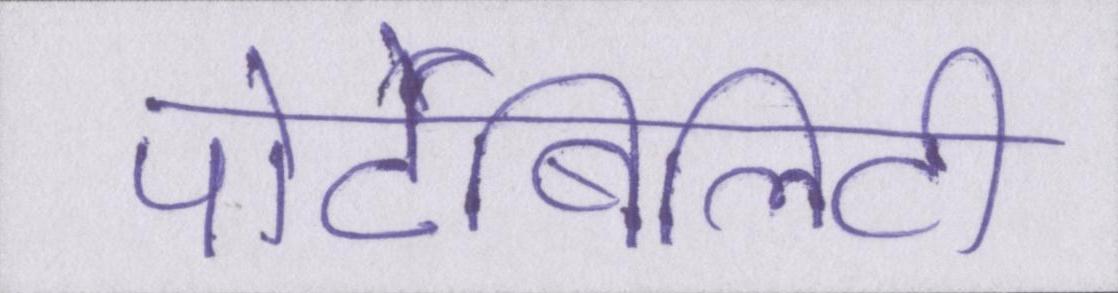 पोर्टेबिलिटी